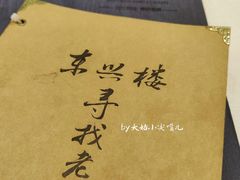 东兴楼
寻
找
老
by大娟小沫嘴儿